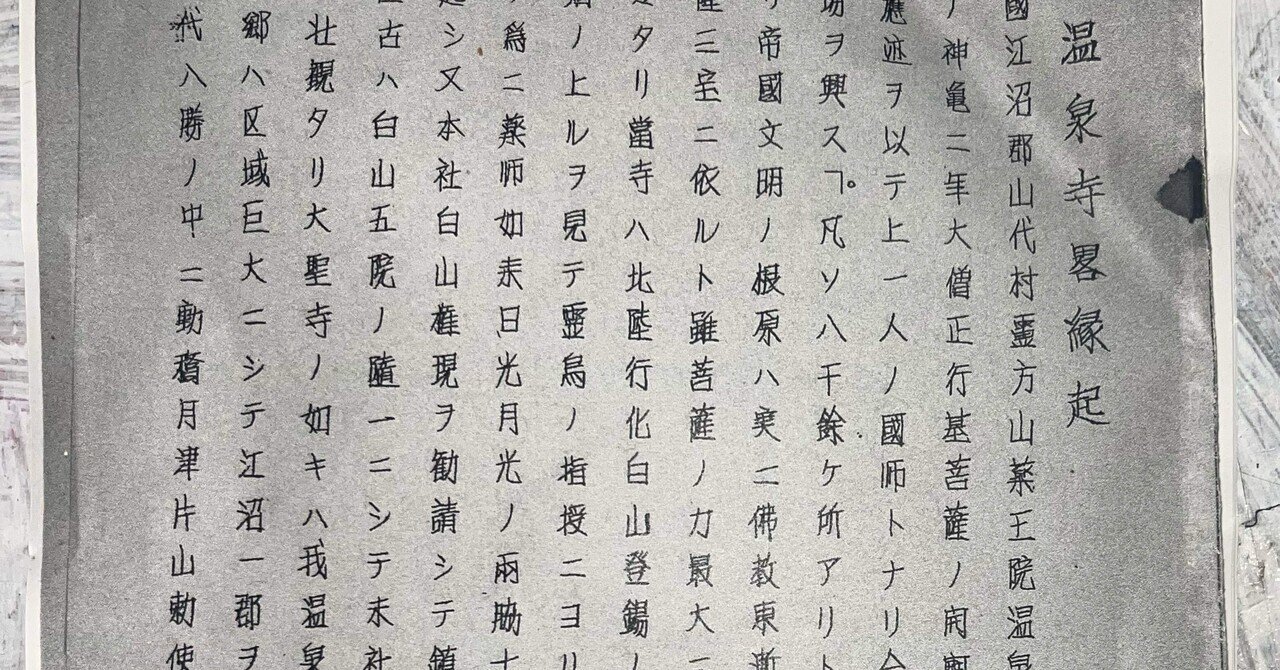 温泉寺畧縁起
國江沼郡山代村霊方山薬王院温泉
ノ神亀二年大僧正行基菩薩ノ
應迹ヲ以テ上一人ノ國师トナリ
場ヲ興スヿ。凡ソ八千餘ケ所アリト
リ帝國文明ノ根原ハ実ニ佛教東漸
薩三宝ニ依ルト雖菩薩ノ力最大
タリ當寺ハ北陸行化白山登錫ノ
ノ上ルヲ見テ靈烏ノ指授ニヨリ
爲ニ薬师如来日光月光ノ兩脇士
シ又本社白山権現ヲ勧請シテ鎮
古ハ白山五院ノ随一ニシテ末社
壮観タリ大聖寺ノ如キハ我温泉
郷ハ区域巨大ニシテ江沼一郡ヲ
代八勝ノ中ニ動橋月津片山勅使